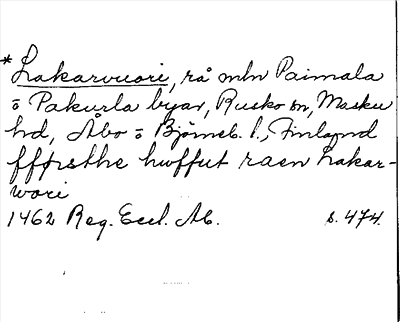 * Lakarvuori, rå mln Paimala
o Pakurla byar, Rusko sn, Masku
hd, Åbo o Björneb. l., Finland
ffførsthe hwffut raen Lakar-
wori
1462 Reg. Eccl. Ab. s. 474.